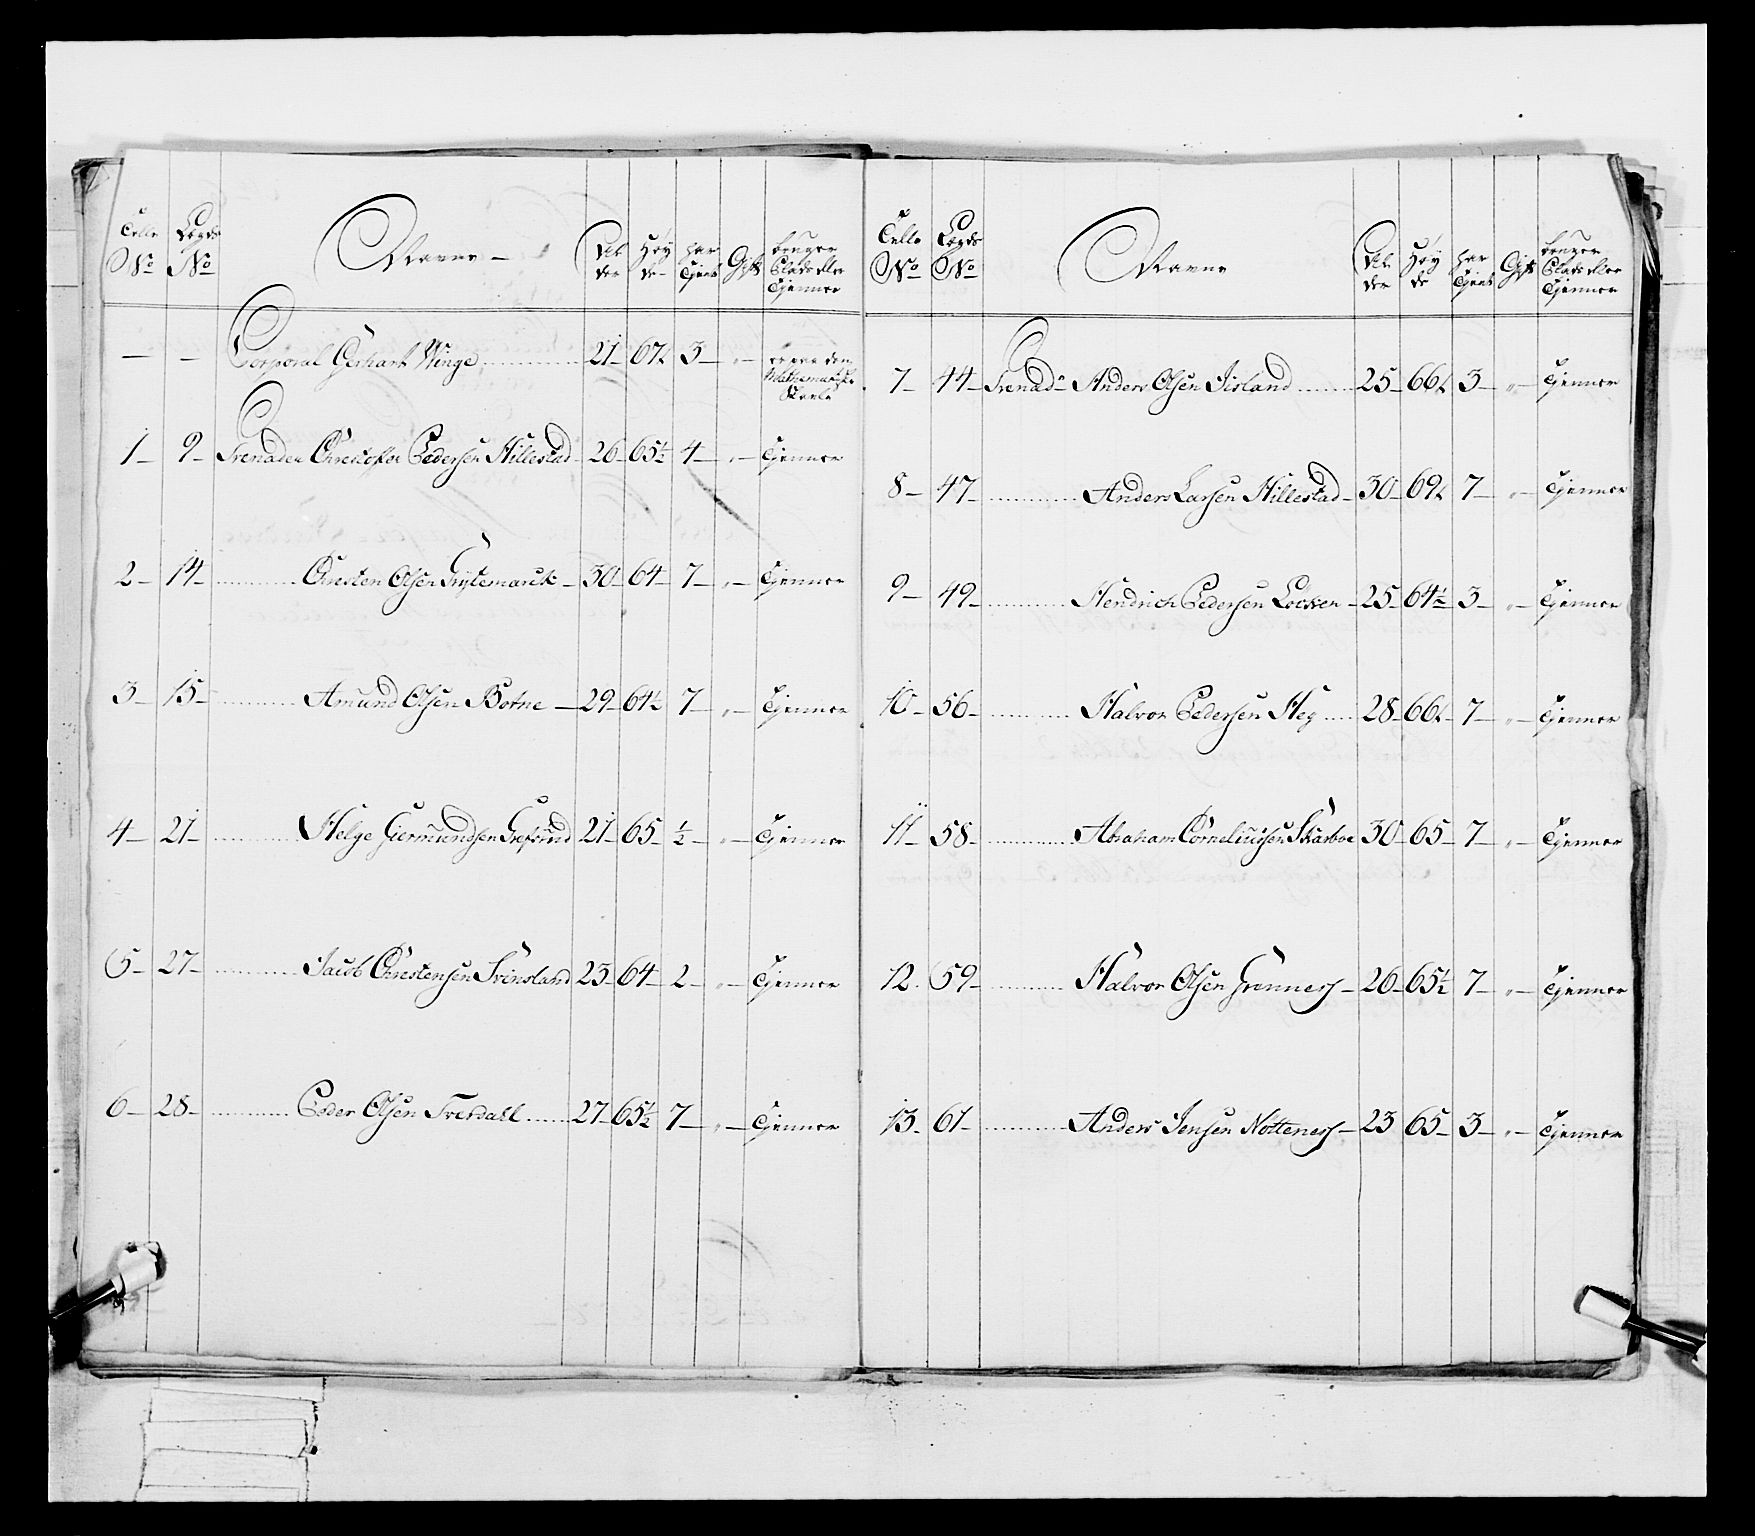 Celle No Legds No Navne Al der Høy de har tjent Gift bruger Plads eller Tjenner
— — Corporal Gerhart Winge 21 67¼ 3 „ er paa den Mathematiske Skoele
1 9 Grenadeer Christoffer Pedersen Hillestad 26 65½ 4 „ Tjenner
2 14 Christen Olsen Grytemarck 30 64 7 „ Tjenner
3 15 Amund Olsen Botne 29 64½ 7 „ Tjenner
4 21 Helge Giermundsen 21 65 ½ „ Tjenner
5 27 Jacob Christensen Svinsland 23 64 2 „ Tjenner
6 28 Peder Olsen Tverdall 27 65½ 7 „ Tjenner
Celle No Legds No Navne Al der Høy de har tjent Gift bruger Plads eller Tjenner
7 44 Grenad: Anders Olsen Sisland 25 66¼ 3 „ Tjenner
8 47 Anders Larsen Hillestad 30 69¼ 7 „ Tjenner
9 49 Hendrich Pedersen Locken 25 64½ 3 „ Tjenner
10 56 Halvor Pedersen Heg 28 66¼ 7 „ Tjenner
11 58 Abraham Corneliussen Skarboe 30 65 7 „ Tjenner
12 59 Halvor Olsen Grønness 26 65½ 7 „ Tjenner
13 61 Anders Jensen Notteness 23 65 3 „ Tjenner